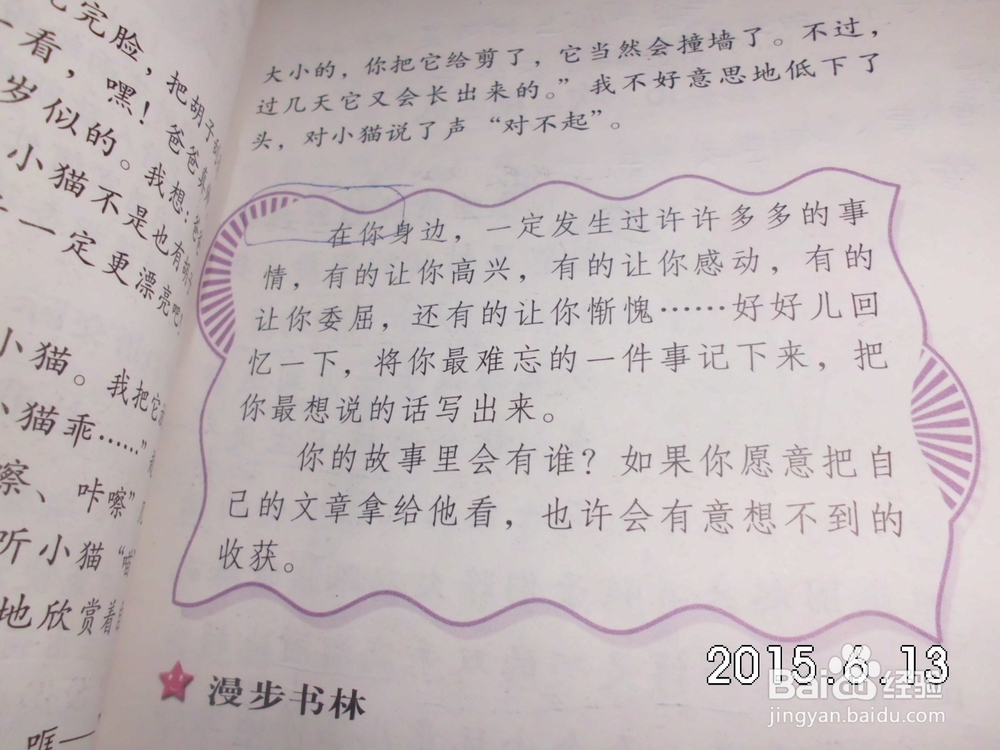 完脸，把胡子
看，嘿！爸爸
岁似的。我想：
小猫不是也有胡子
一定更漂亮吧！
小猫。我把它
小猫乖……”
嚓、咔嚓”
听小猫“喵
地欣赏着
哐一
大小的，你把它给剪了，它当然会撞墙了。不过，
过几天它又会长出来的。”我不好意思地低下了
头，对小猫说了声“对不起”。
在你身边，一定发生过许许多多的事
情，有的让你高兴，有的让你感动，有的
让你委屈，还有的让你惭愧……好好儿回
忆一下，将你最难忘的一件事记下来，把
你最想说的话写出来。
你的故事里会有谁？如果你愿意把自
己的文章拿给他看，也许会有意想不到的
收获。
漫步书林
2015.6.13
Baidu经验
jingyan.baidu.com